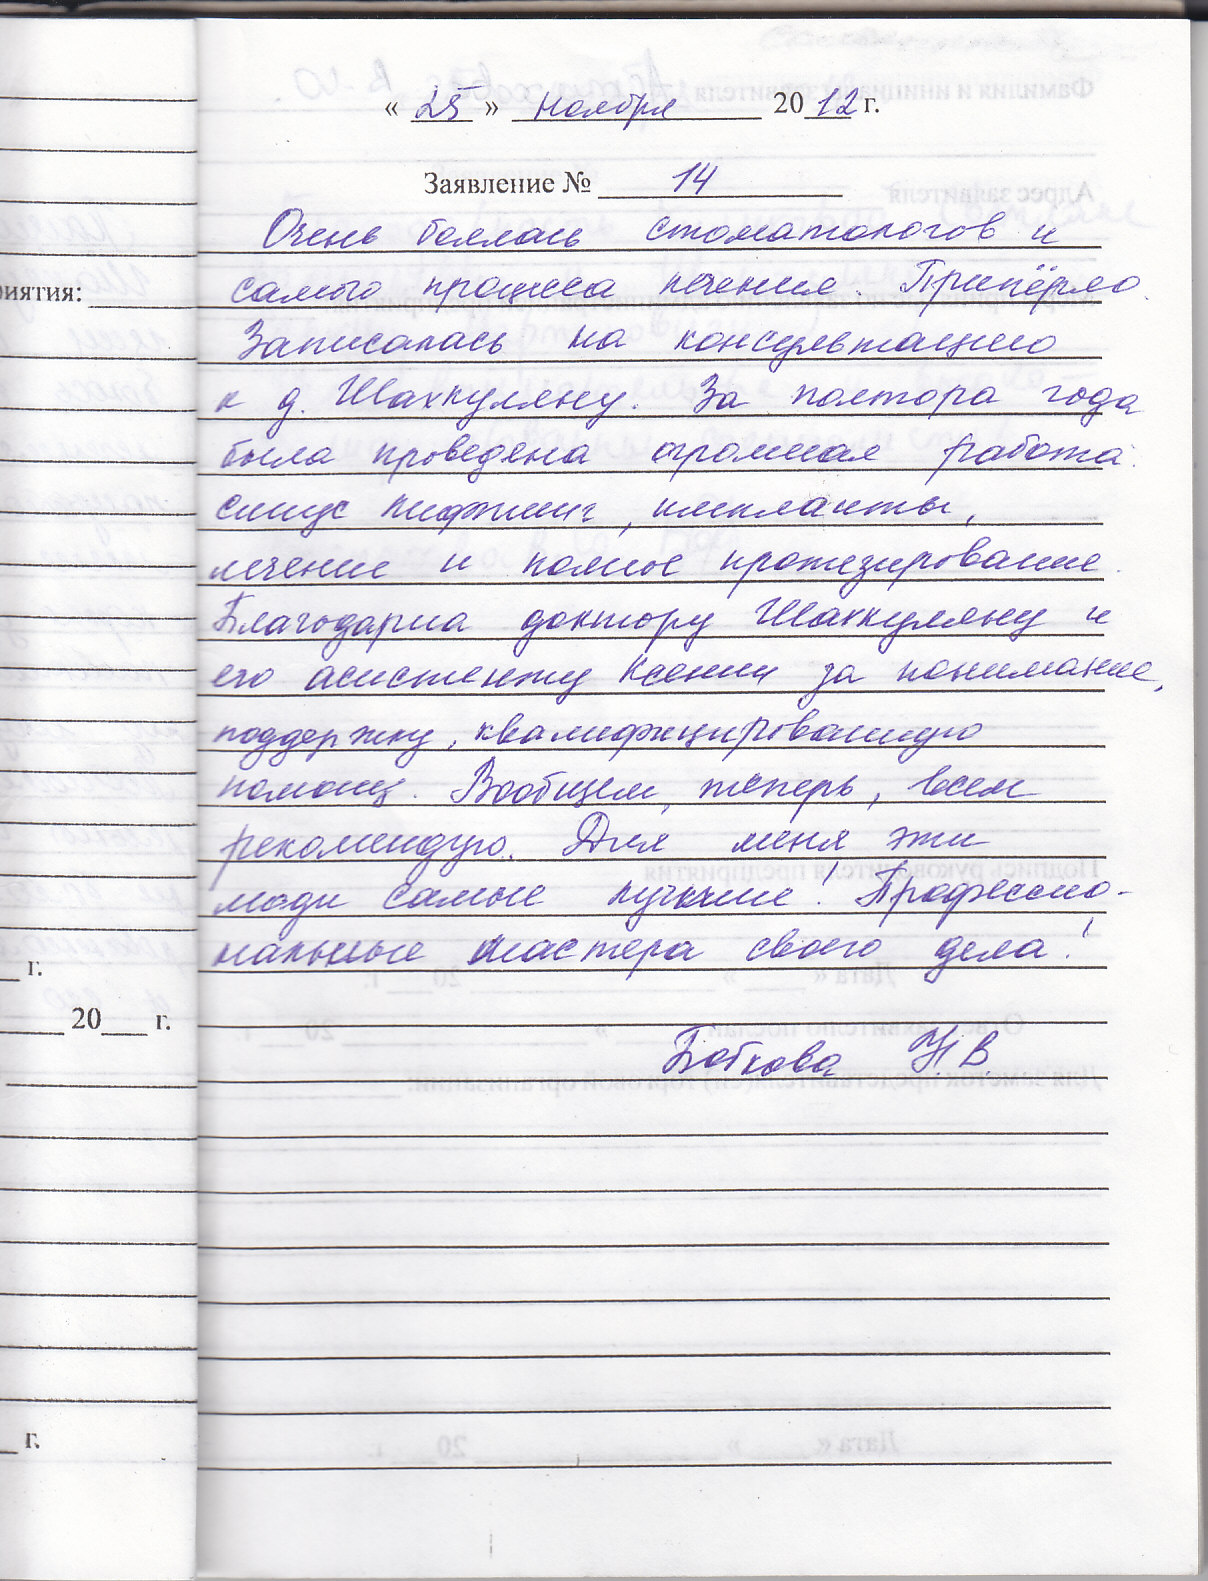 « 25 » ноября 2012 г.
Заявление № 14
Очень боялась стоматологов и
самого процесса лечения. Припёрло.
Записалась на консультацию
иятия:
к д. Шахкуляну. За полтора года
была проведена огромная работа:
синус лифтинг, импланты,
лечение и полное протезирование.
Благодарна доктору Шахкуляну и
его асистенту Ксении за понимание,
поддержку, квалифицированную
помощ. Вообщем, теперь, всем
рекомендую. Для меня эти
люди самые лучшие! Професcио-
нальные мастера своего дела!
г.
20 г.
Бобкова Н.В.
г.